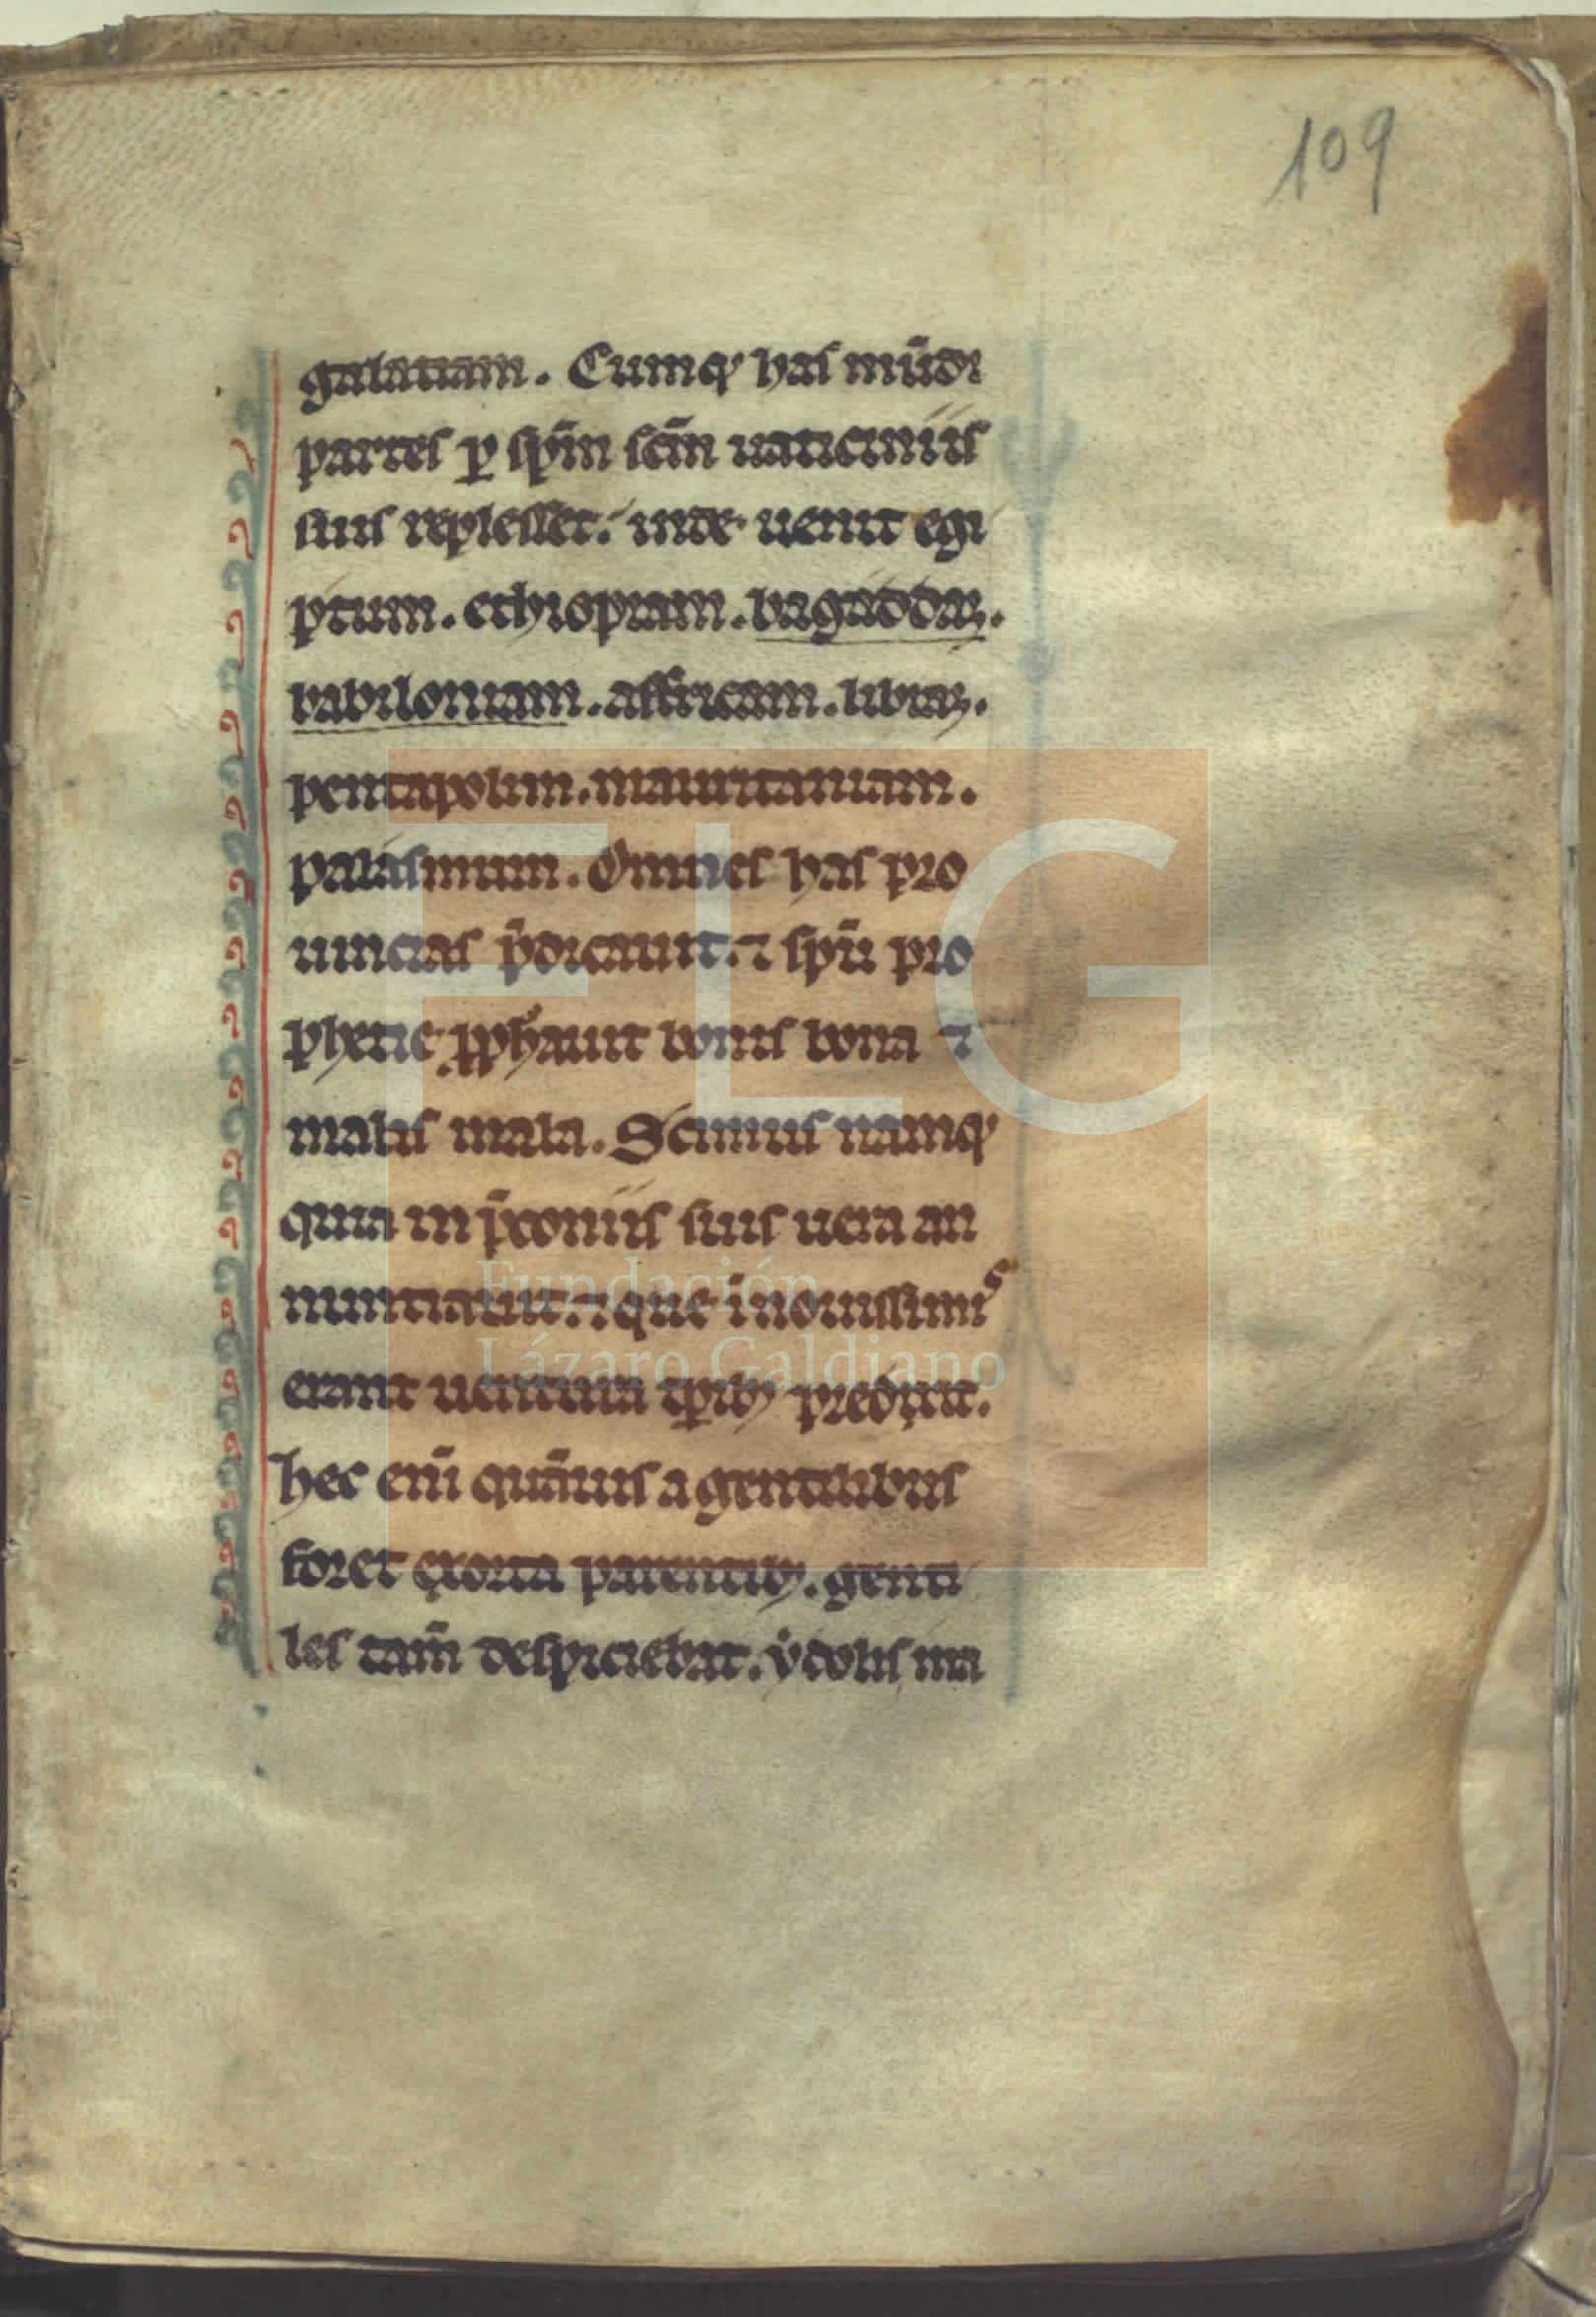 109
galatiam. Cumqꝫ has mūdi
partes ꝑ spm̄ scm̄ uaticiniis
suis replesset. inde uenit egi
ptum. ethiopiam. bagaddaꝫ.
babiloniam. affricam. libiaꝫ.
pentapolim. mauritaniam.
palasmum. Omnes has pro
uincias p̄dicauit. ⁊ spū pro
phetie ꝓphauit bonis bona ⁊
malis mala. Scimus namqꝫ
quia in p̄coniis suis uera an
nuntiauit. ⁊ que ī nouissimis
erant uentura tꝑibꝫ predixit.
hec eni̅ quāuis a gentilibus
foret exorta parentibꝫ. genti
les tam̄ despiciebat. ẏdolis ma
FLG
Fundación
Lázaro Galdiano